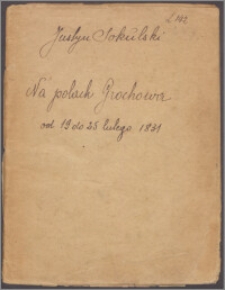 Justyn Sokulski
Na polach Grochowa
od 19 do 25 lutego 1831